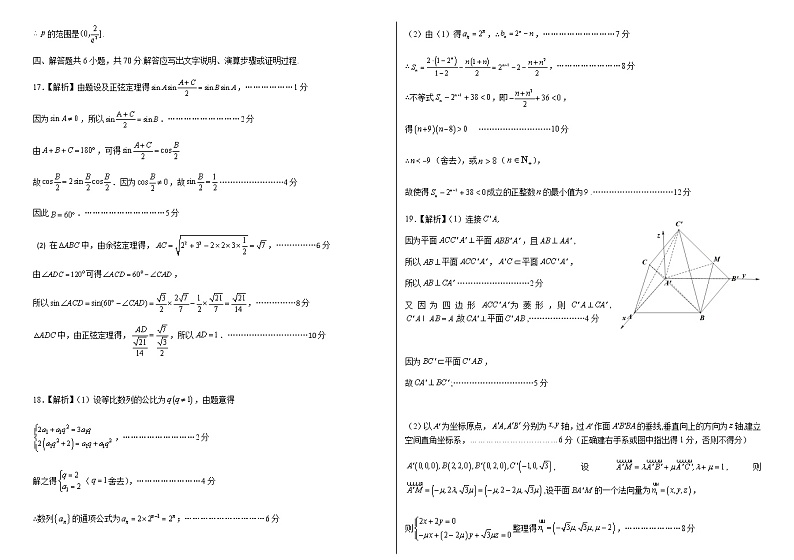 ∴ p的范围是(0, 2/q³].
四、解答题共 6 小题，共 70 分.解答应写出文字说明、演算步骤或证明过程.
17.【解析】由题设及正弦定理得sin A sin (A+C)/2 = sin B sin A，………………1 分
因为 sin A ≠ 0，所以sin (A+C)/2 = sin B．………………………2 分
由 A+B+C=180°，可得sin (A+C)/2 = cos B/2
故cos B/2 = 2sin B/2 cos B/2．因为cos B/2 ≠ 0，故sin B/2 = 1/2……………………4 分
因此B=60°．…………………………5 分
(2) 在△ABC中，由余弦定理得，AC=√(2²+3²-2×2×3×1/2)=√7，……………6 分
由∠ADC=120°可得∠ACD=60°-∠CAD，
所以sin∠ACD=sin(60°-∠CAD)=√3/2×2√7/7-1/2×√21/7=√21/14，……………8 分
△ADC中，由正弦定理得，AD/(√21/14)=√7/(√3/2)，所以AD=1．…………………………10 分
18.【解析】（1）设等比数列的公比为q(q≠1)，由题意得
{2a₁+a₁q²=3a₁q
2(a₁q²+2)=a₁q+a₁q³，………………………2 分
解之得{q=2
a₁=2（q=1舍去），……………………4 分
∴数列{aₙ}的通项公式为aₙ=2×2ⁿ⁻¹=2ⁿ；…………………………6 分
（2）由（1）得aₙ=2ⁿ，∴bₙ=2ⁿ-n，………………………7 分
∴Sₙ=2·(1-2ⁿ)/(1-2)-n(1+n)/2=2ⁿ⁺¹-2-(n+n²)/2，……………………8 分
∴不等式Sₙ-2ⁿ⁺¹+38<0，即-(n+n²)/2+36<0，
得(n+9)(n-8)>0 ………………………10 分
∴n<-9（舍去），或n>8（n∈N₊），
故使得Sₙ-2ⁿ⁺¹+38<0成立的正整数n的最小值为9．…………………………12 分
19.【解析】（1）连接C'A,
因为平面ACC'A'⊥平面ABB'A'，且AB⊥AA'．
所以AB⊥平面ACC'A'，A'C⊂平面ACC'A'，
所以AB⊥CA'………………………2 分
又因为四边形ACC'A'为菱形，则C'A⊥CA'．
C'A I AB=A.故CA'⊥平面C'AB．…………………4 分
因为BC'⊂平面C'AB，
故CA'⊥BC'；…………………………5 分
（2）以A'为坐标原点，A'A,A'B'分别为x,y轴，过A'作面A'B'BA的垂线,垂直向上的方向为z轴,建立
空间直角坐标系，……………………………6 分（正确建右手系或图中指出得 1 分，否则不得分）
A'(0,0,0),B(2,2,0),B'(0,2,0),C'(-1,0,√3). 设 A'M=λA'B'+μA'C',λ+μ=1． 则
A'M=(-μ,2λ,√3μ)=(-μ,2-2μ,√3μ).设平面BA'M的一个法向量为n₁=(x,y,z)，
则{2x+2y=0
-μx+(2-2μ)y+√3μz=0整理得n₁=(-√3μ,√3μ,μ-2)，…………………8 分
C'
z
C
M
A'
B' y
x A
B